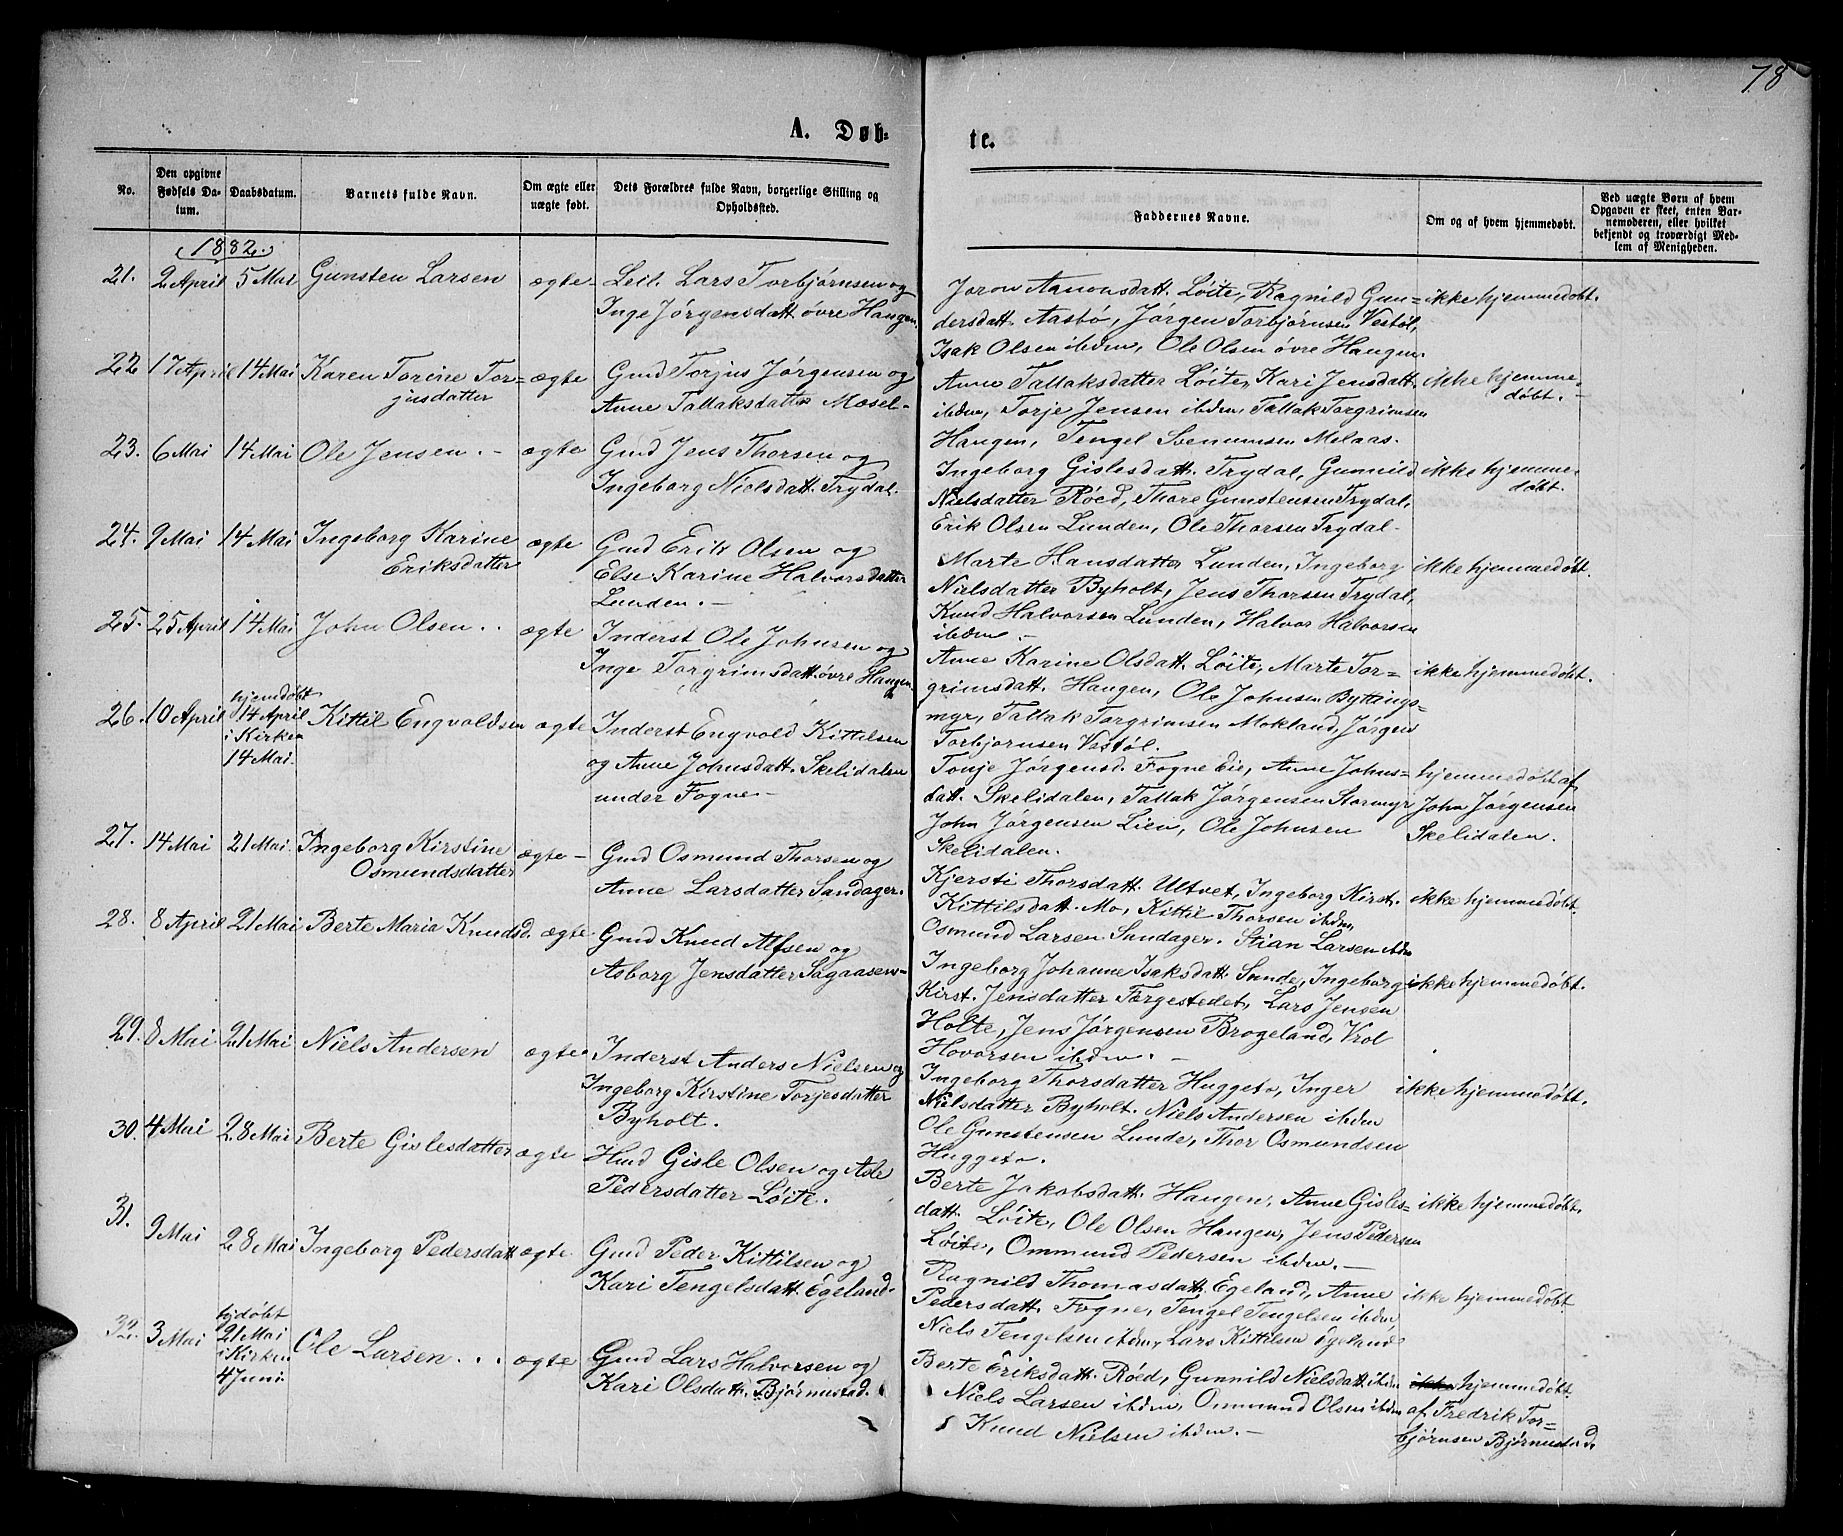 78
A. Døb-
te.
No.
Den opgivne Fødsels Da-tum.
Daabsdatum.
Barnets fulde Navn.
Om ægte eller uægte født.
Dets Forældres fulde Navn, borgerlige Stilling og Opholdssted.
Faddernes Navne.
Om og af hvem hjemmedøbt.
Ved uægte Børn af hvem Opgaven er skeet, enten Bar-nemoderen, eller hvilket bekjendt og troværdigt Med-lem af Menigheden.
1882.
21. 2 April 5 Mai Gunsten Larsen ægte- Leil. Lars Torbjørnsen og
Inge Jørgensdatt. øvre Haugen.
Joron Aanonsdatt. Løite, Ragnild Gun= ikke hjemmedøbt.
dersdatt. Aasbø, Jørgen Torbjørnsen Vestøl,
Isak Olsen ibdm, Ole Olsen øvre Haugen.
22 17 April 14 Mai Karen Torine Tor= ægte Gmd Torjus Jørgensen og
jusdatter Anne Tallaksdatter Mæsel-
Anne Tallaksdatter Løite, Kari Jensdatt. ikke hjemme-
ibdm, Torje Jensen ibdm, Tallak Torgrimsen døbt.-
Haugen, Tengel Svenumsen Melaas.
23. 6 Mai 14 Mai Ole Jensen.- ægte Gmd Jens Thorsen og
Ingeborg Nielsdatt. Trydal.
Ingeborg Gislesdatt. Trydal, Gunnild ikke hjemme-
Nielsdatter Røed, Thore Gunstensen Trydal, døbt.
Erik Olsen Lunden, Ole Thorsen Trydal-
24. 9 Mai 14 Mai Ingeborg Karine ægte Gmd Erik Olsen og
Eriksdatter Else Karine Halvorsdatter
Lunden.-
Marte Hansdatter Lunden, Ingeborg ikke hjemmedøbt.
Nielsdatter Byholt, Jens Thorsen Trydal,
Knud Halvorsen Lunden, Halvor Halvorsen
ibdm.-
25. 25 April 14 Mai John Olsen.. ægte Inderst Ole Johnsen og
Inge Torgrimsdatt. øvre Haugen
Anne Karine Olsdatt. Løite, Marte Tor= ikke hjemmedøbt.
grimsdatt. Haugen, Ole Johnsen Byttings=
myr, Tallak Torgrimsen Mokland, Jørgen
Torbjørnsen Vestøl.
26. 10 April hjemdøbt 14 April i Kirken 14 Mai. Kittil Engvoldsen ægte Inderst Engvold Kittilsen
og Anne Johnsdatt. Skelidalen
under Fogne-
Tonje Jørgensd. Fogne Eie, Anne Johns= hjemmedøbt af
datt. Skelidalen, Tallak Jørgensen Stormyr John Jørgensen
John Jørgensen Lien, Ole Johnsen Skelidalen.
Skelidalen.
27. 14 Mai 21 Mai. Ingeborg Kirstine ægte- Gmd Osmund Thorsen og
Osmundsdatter Anne Larsdatter Sandager.
Kjersti Thorsdatt. Ultvet, Ingeborg Kirst. ikke hjemmedøbt.
Kittilsdatt. Mo, Kittil Thorsen ibdm,
Osmund Larsen Sandager. Stian Larsen ibdm
28. 8 April 21 Mai Berte Maria Knudsd. ægte Gmd Knud Alfsen og
Asborg Jensdatter Sagaasen-
Ingeborg Johanne Isaksdatt. Sunde, Ingeborg ikke hjemmedøbt.
Kirst. Jensdatter Færgestedet, Lars Jensen
Holte, Jens Jørgensen Brogeland, Vrol
Hovorsen ibdm.-
29. 8 Mai 21 Mai Niels Andersen ægte Inderst Anders Nielsen og
Ingeborg Kirstine Torjesdatter
Byholt.
Ingeborg Thorsdatter Huggetø, Inger ikke hjemmedøbt.
Nielsdatter Byholt. Niels Andersen ibdm
Ole Gunstensen Lunde, Thor Osmundsen
Huggetø.
30. 4 Mai 28 Mai Berte Gislesdatter ægte Hmd Gisle Olsen og Asle
Pedersdatter Løite.
Berte Jakobsdatt. Haugen, Anne Gisles= ikke hjemmedøbt.
datt. Løite, Ole Olsen Haugen, Jens Pedersen
Løite, Ommund Pedersen ibdm.-
31. 9 Mai 28 Mai Ingeborg Pedersdatt. ægte Gmd Peder Kittilsen og
Kari Tengelsdatt. Egeland.
Ragnild Thomasdatt. Egeland, Anne ikke hjemmedøbt
Pedersdatt. Fogne, Tengel Tengelsen ibdm,
Niels Tengelsen ibdm, Lars Kittilsen Egeland
32. 3 Mai hjdøbt 21 Mai i Kirken 4 Juni. Ole Larsen... ægte Gmd Lars Halvorsen og
Kari Olsdatt. Bjørnestad.
Berte Eriksdatt. Røed, Gunnild Nielsdatt. ibdm ikke hjemmedøbt.
Niels Larsen ibdm, Ommund Olsen ibdm af Fredrik Tor=
Knud Nielsen ibdm.- bjørnsen Bjørnestad.